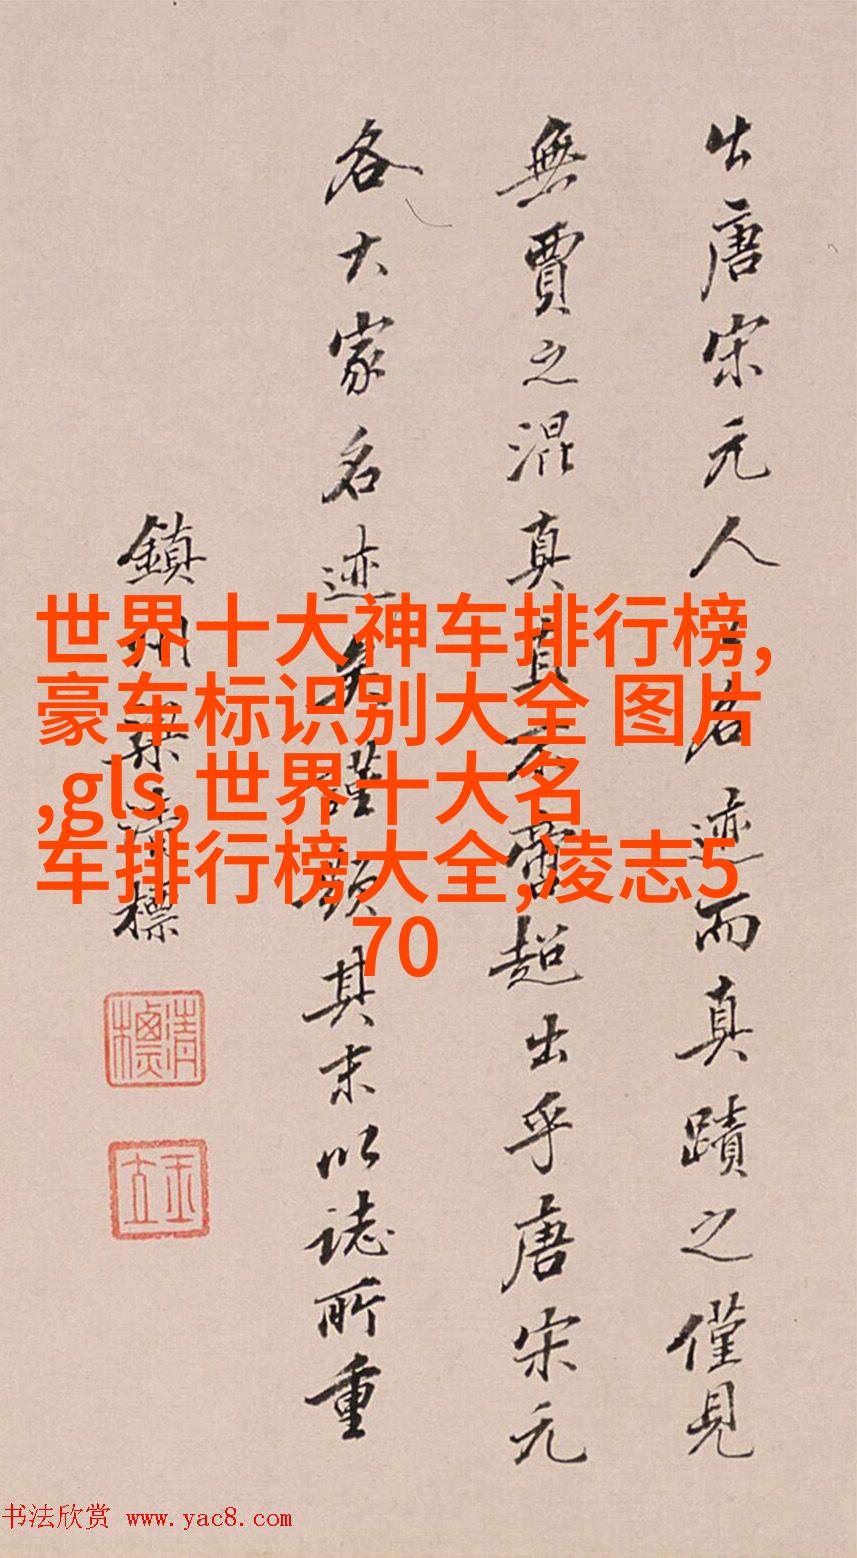 出唐宋元人之名迹而真蹟之僅見
無賈之混真真不啻超出乎唐宋元
各大家名迹矣謹題其末以誌所重
鎮州梁清標
清標
玉立
世界十大神车排行榜,
豪车标识别大全 图片
,gls,世界十大名
车排行榜大全,凌志5
70
书法欣赏 www.yac8.com